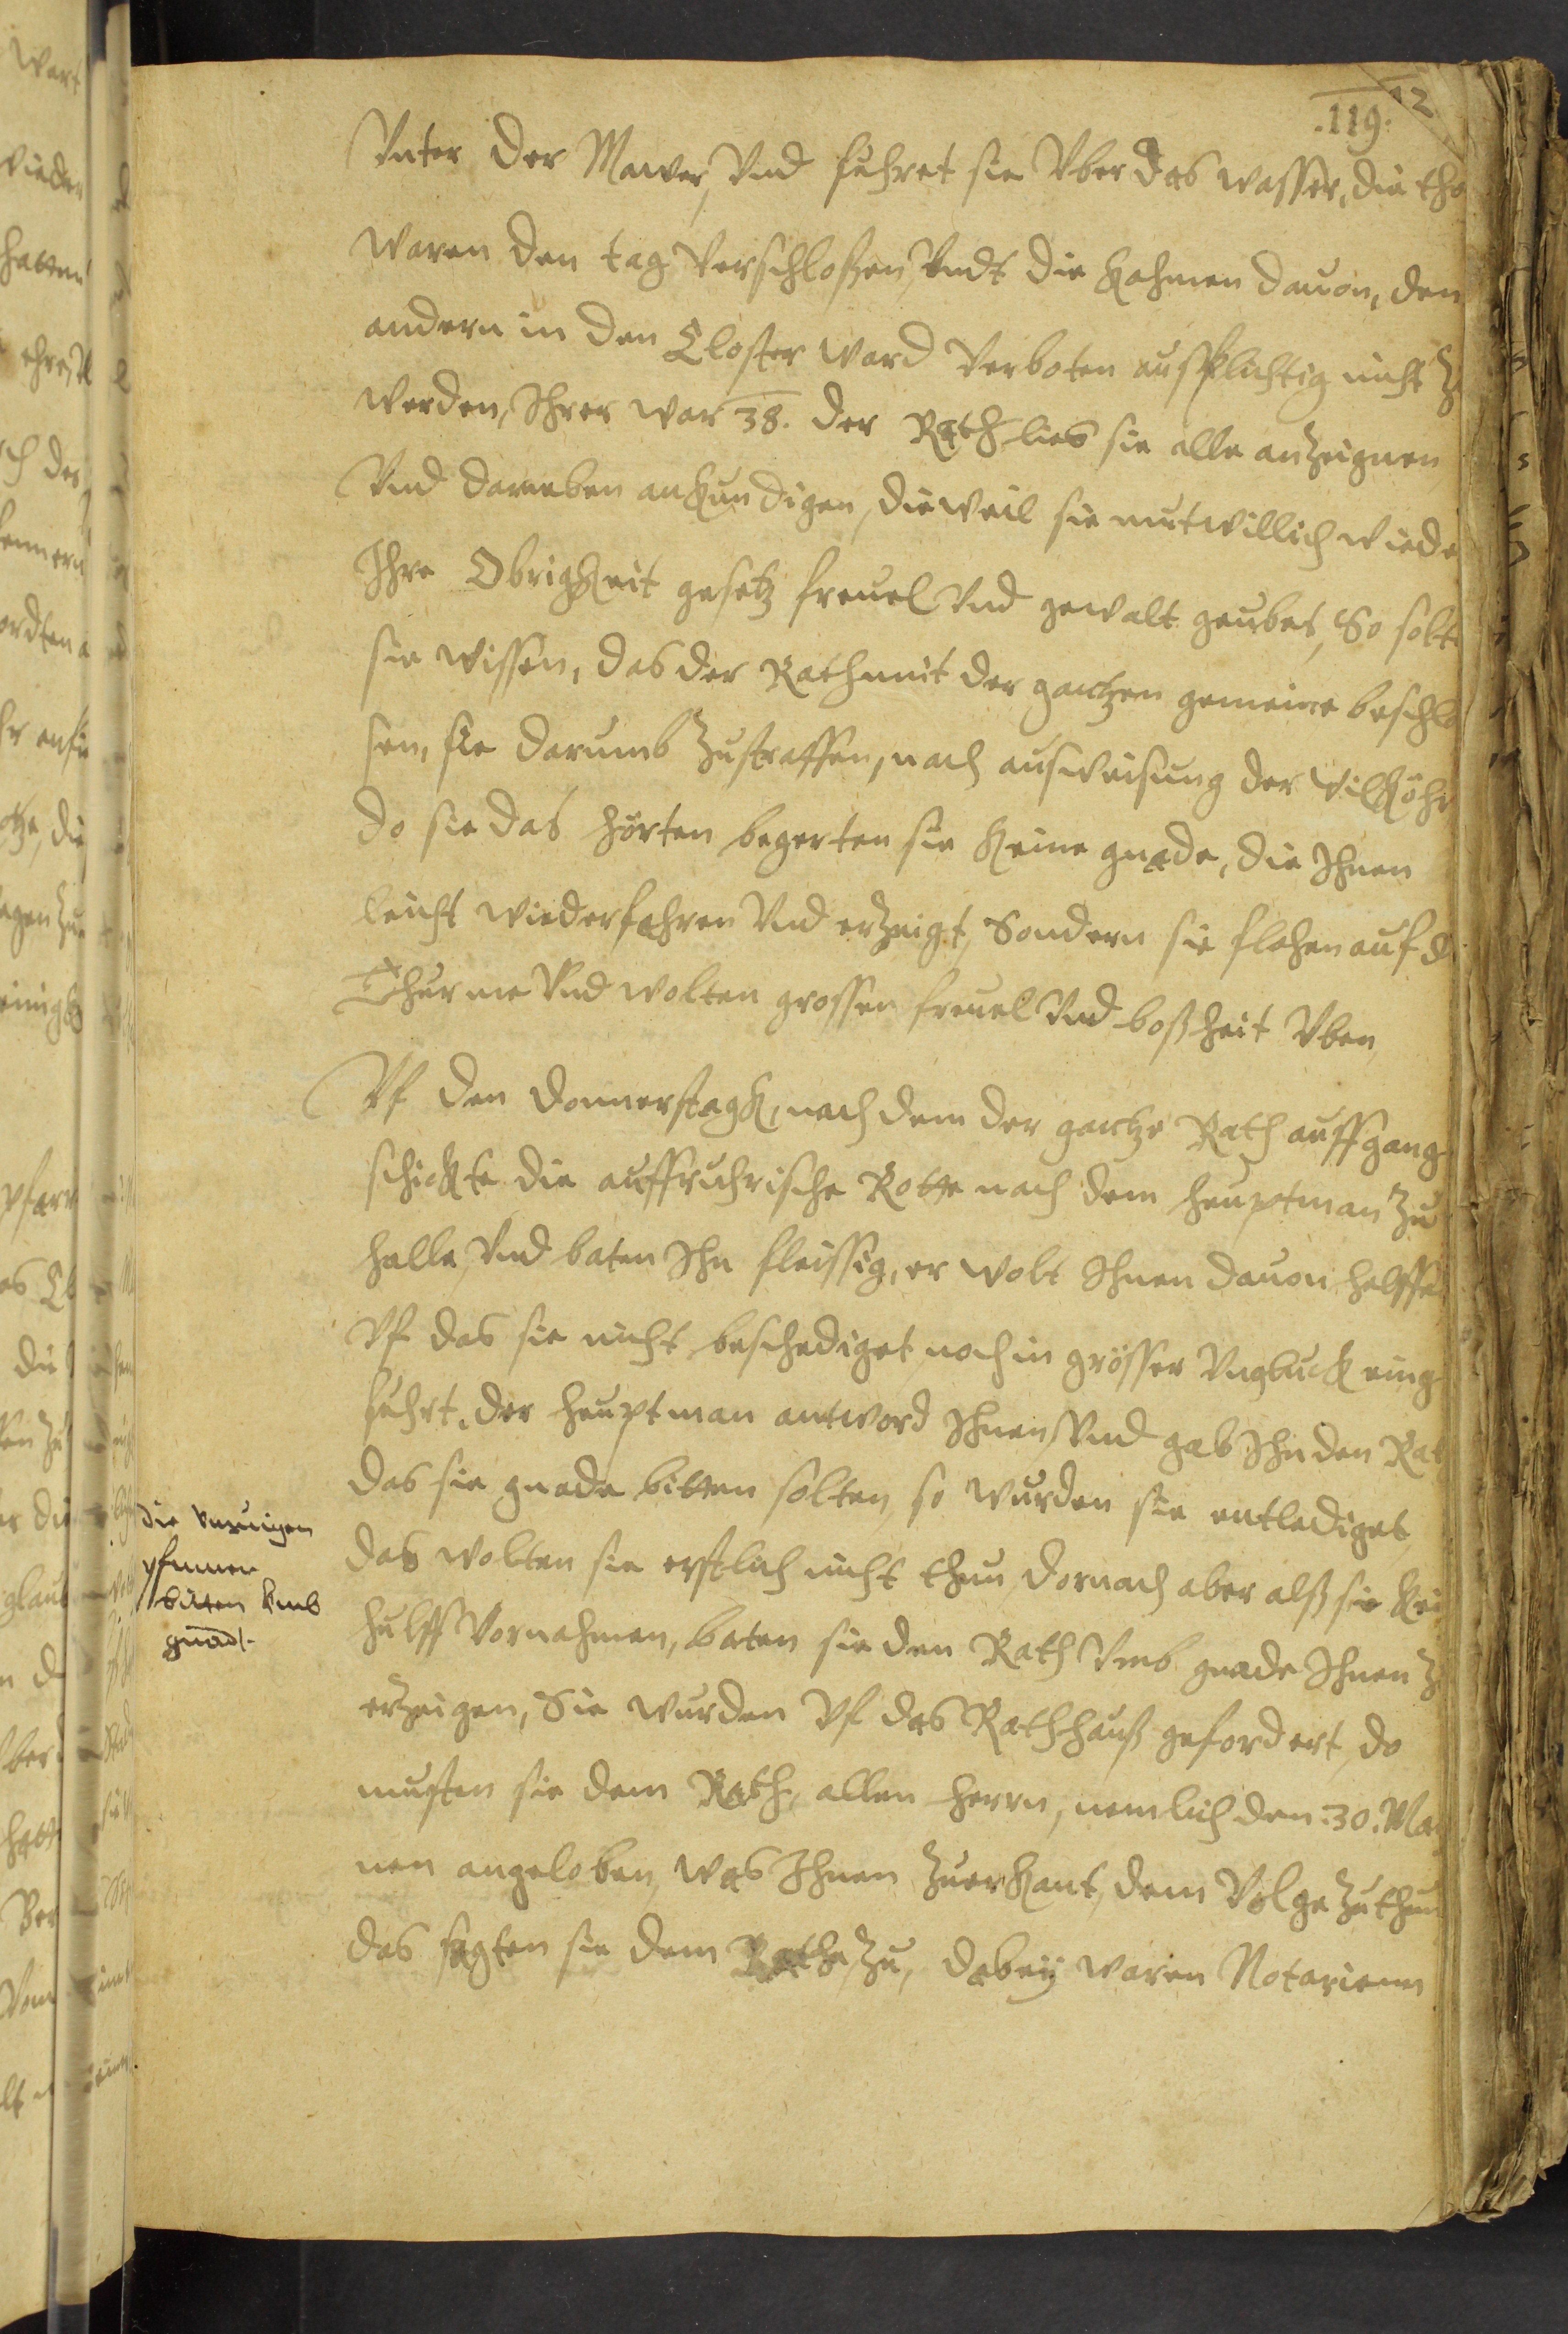 12
.119.
Vnter der Mawer, Vnd fuhret sie Vber das wasser, die tho
waren den tag Verschloßen, Vndt die kahmen dauon, den
andern in den Closter ward Verboten ausflichtig nicht Zu
werden, Ihrer war 38. der Rath lies sie alle anzeignen
Vnd darneben ankundigen, dieweil sie mutwillich wieder
Ihre Obrigkeit gesetz freuel Vnd gewalt geubet, So solten
sie wissen, das der Rath mit der gantzen gemeine beschlo
sen, sie darumb Zustraffen, nach ausweisung der wilköhr
do sie das hörten begerten sie keine gnade, die Ihnen
leicht wiederfahren Vnd erzeigt, Sondern sie flohen auf d
Thurme Vnd wolten grossen freuel Vnd boßheit Vben
Vf den donnerstagk, nach dem der gantze Rath auffgang
schickte die auffruhrische Rotte nach dem heuptman Zu
halle, Vnd baten Ihn fleissig, er wolt Ihnen dauon helffe
Vf das sie nicht beschediget, noch in grösser Vngluck eing
fuhrt, der heuptman antword Ihnen, Vnd gab Ihn den Rat
das sie gnade bitten solten, so wurden sie entlediget
das wolten sie erstlich nicht thun, dornach aber alß sie kei
hulff Vornahmen, baten sie den Rath Vmb gnade Ihnen Z
erzeigen, Sie wurden Vf das Rathhauß gefordert, do
musten sie dem Rath, allen herrn, nemlich den .30. Ma
nen angeloben, was Ihnen Zuerkant, dem Volge Zuthun
das sagten sie dem Rathe Zu, dabeÿ waren Notarienn
die
pfenner
bitten Vmb
gnad.